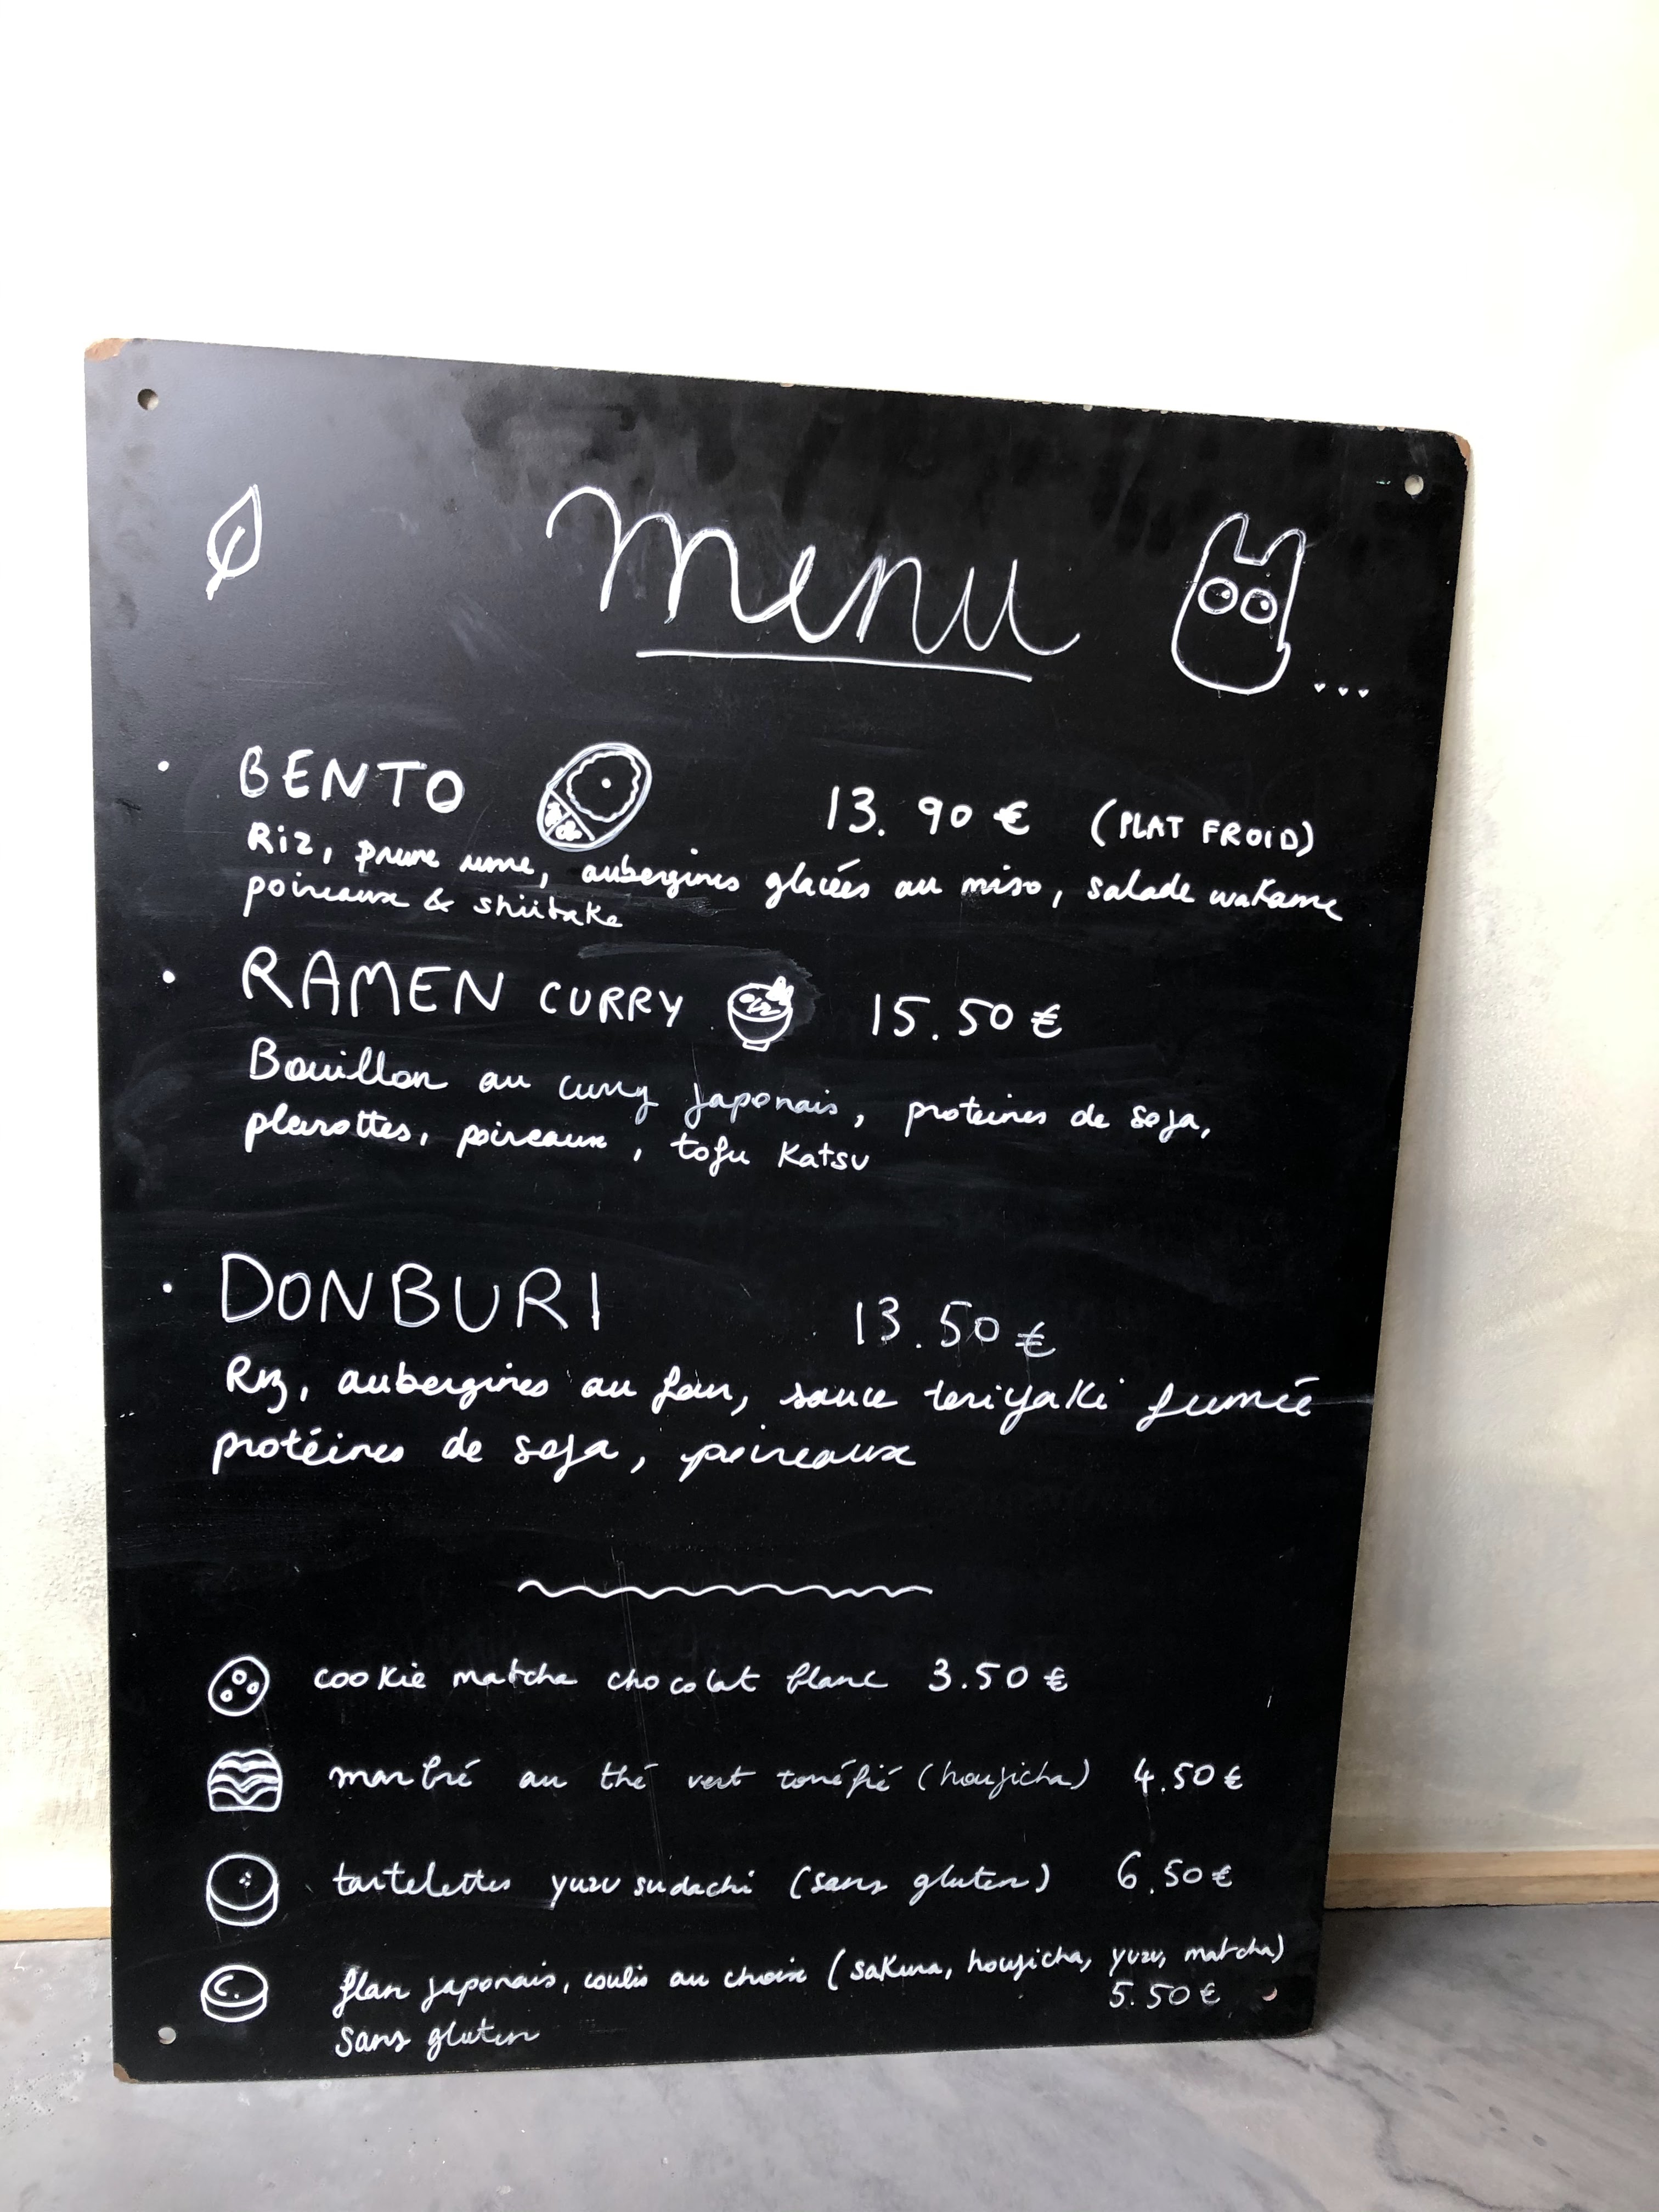 menu
...
· BENTO 13.90 € (PLAT FROID)
Riz, prune ume, aubergines glacées au miso, salade wakame
poireaux & shiitake
· RAMEN CURRY 15.50 €
Bouillon au curry japonais, proteines de soja,
pleurottes, poireaux, tofu Katsu
· DONBURI 13.50 €
Riz, aubergines au four, sauce teriyaki fumée
protéines de soja, poireaux
cookie matcha chocolat blanc 3.50 €
marbré au thé vert torréfié (houjicha) 4.50 €
tartelettes yuzu sudachi (sans gluten) 6.50 €
flan japonais, coulis au choix (sakura, houjicha, yuzu, matcha)
5.50 €
sans gluten